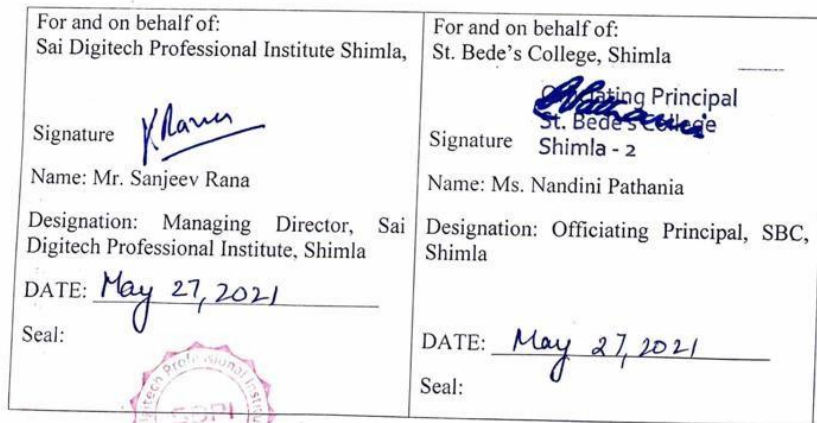 For and on behalf of:
Sai Digitech Professional Institute Shimla,
Signature
Name: Mr. Sanjeev Rana
Designation: Managing Director, Sai
Digitech Professional Institute, Shimla
DATE: May 27, 2021
Seal:
Professional Institu
SDPI
For and on behalf of:
St. Bede's College, Shimla
Officiating Principal
St. Bede's College
Signature Shimla - 2
Name: Ms. Nandini Pathania
Designation: Officiating Principal, SBC,
Shimla
DATE: May 27, 2021
Seal: